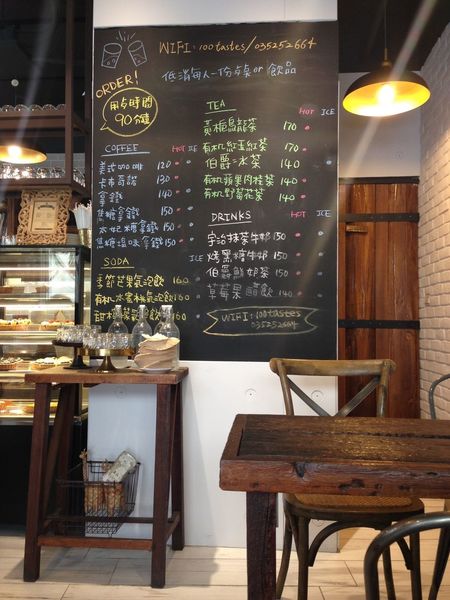 WIFI: 100tastes/035252664
低消每人一份甜點or飲品
ORDER!
用餐時間
90分鐘
COFFEE HOT ICE
美式咖啡 120
卡布奇諾 130
拿鐵 140
焦糖拿鐵 150
太妃糖拿鐵 150
焦糖海鹽拿鐵 150
SODA ICE
季節芒果氣泡飲 160
有机水蜜桃氣泡飲 160
甜橙 氣泡飲 160
TEA HOT ICE
黃梔烏龍茶 170
有机紅玉紅茶 170
伯爵冰茶 140
有机蘋果肉桂茶 140
有机野莓花茶 140
DRINKS HOT ICE
宇治抹茶牛奶 150
烤黑糖牛奶 150
伯爵鮮奶茶 150
草莓果醋飲 140
WIFI: 100tastes
:035252664